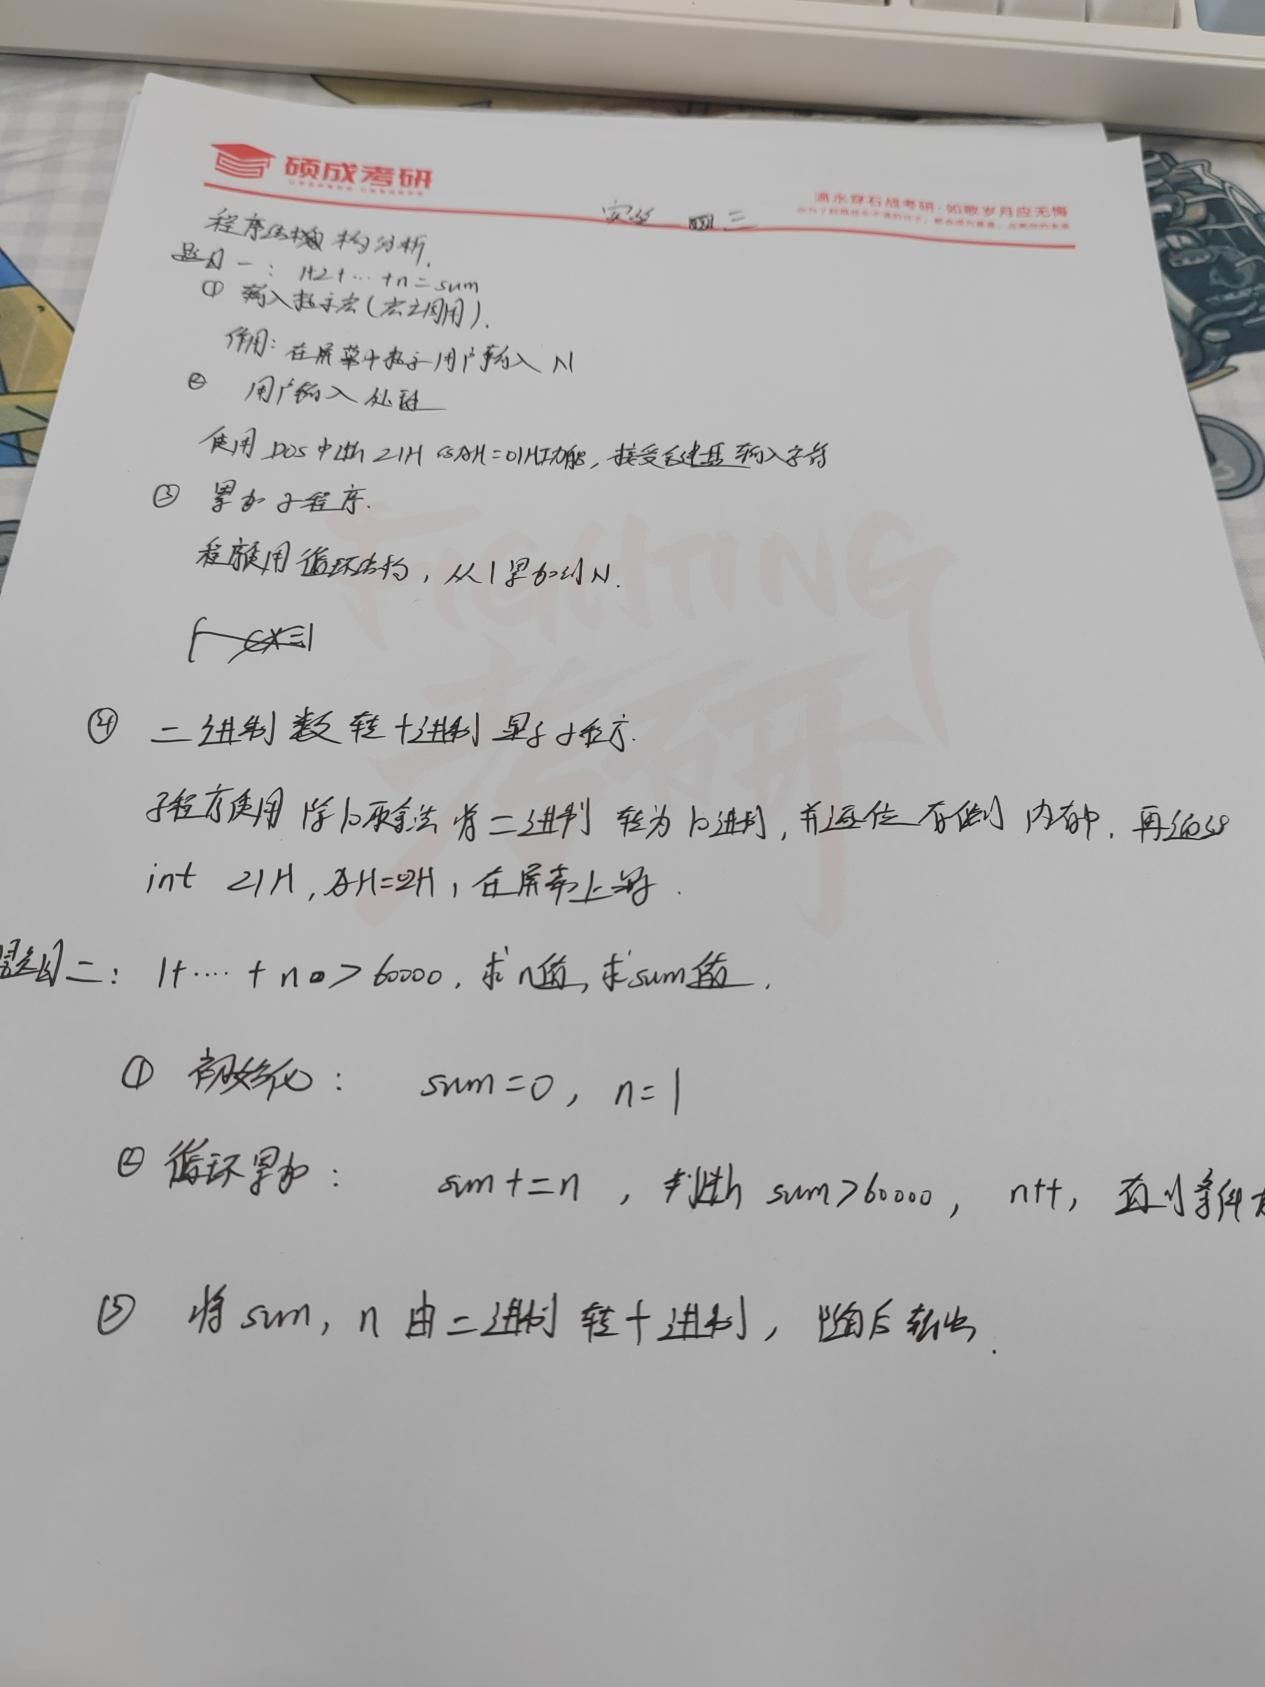 硕成考研
滴水穿石战考研·如歌岁月应无悔
实验 三
程序结构分析.
题目一: 1+2+…+n=sum
① 输入提示宏(宏调用).
作用: 在屏幕中提示用户输入 N
② 用户输入处理
使用 DOS 中断 21H 的AH=01H功能, 接受键盘输入字符
③ 累加子程序.
程序使用循环结构, 从1累加到N.
④ 二进制数转十进制显示子程序.
子程序使用除10取余法将二进制转为10进制, 并逐位存储到内存中. 再通过
int 21H, AH=2H, 在屏幕上显示.
题目二: 1+….+n>60000, 求n值, 求sum值.
① 初始化: sum=0, n=1
② 循环累加: sum+=n, 判断 sum>60000, n++, 直到条件
③ 将sum, n由二进制转十进制, 随后输出.
FIGHTING
考研